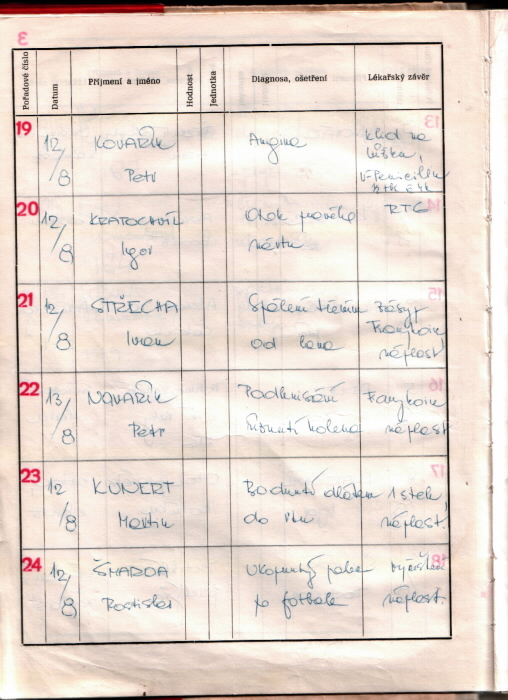 3
Pořadové číslo
Datum
Příjmení a jméno
Hodnost
Jednotka
Diagnosa, ošetření
Lékařský závěr
19
12/8
KOVAŘÍK
Petr
Angina
klid na
lůžku,
V-Penicilin
20
12/8
KRATOCHVÍL
Igor
Otok pravého
nártu
RTG
21
12/8
STŘECHA
Ivan
Spálení třením
od lana
Zásyp
Framykoin
náplast
22
13/8
NAVAŘÍK
Petr
kolena
Framykoin
náplast
23
12/8
KUNERT
Martin
Bodnutí dlátem
do rtu
1 steh
náplast
24
12/8
ŠMARDA
Rostislav
Ukopnutý palec
po fotbale
náplast.